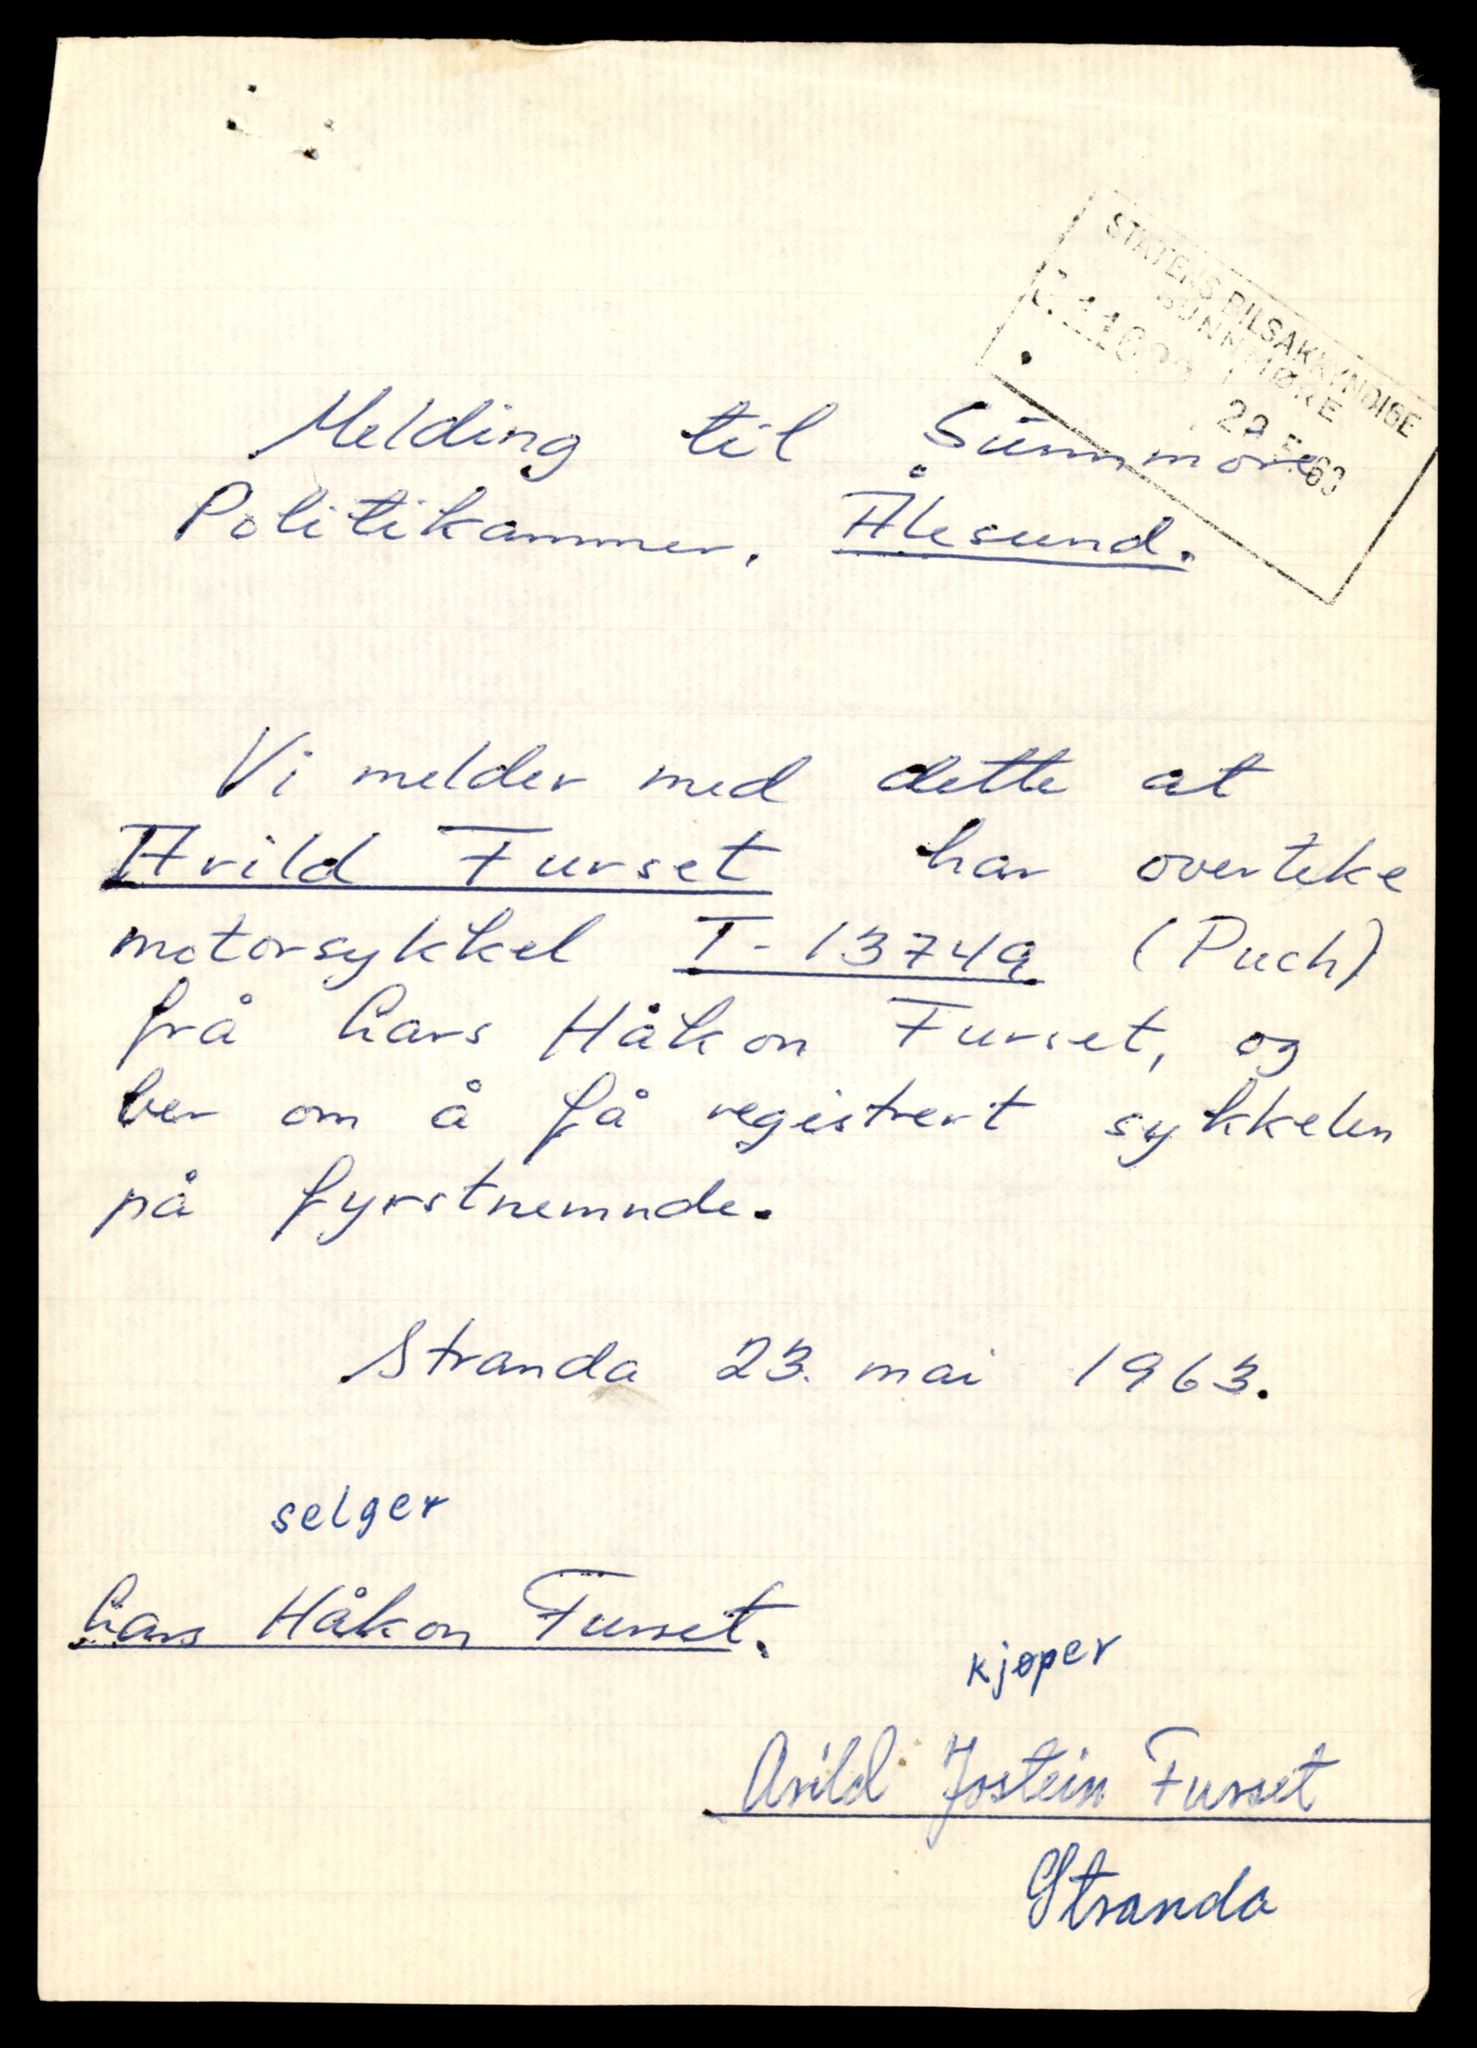 STATENS BILSAKKYNDIGE
SUNNMØRE
29.5.63
Melding til Sunnmøre
Politikammer, Ålesund.
Vi melder med dette at
Arild Furset har overteke
motorsykkel T-13749 (Puch)
frå Lars Håkon Furset, og
ber om å få registrert sykkelen
på fyrstnemnde.
Stranda 23. mai 1963.
selger
Lars Håkon Furset.
kjøper
Arild Jostein Furset
Stranda